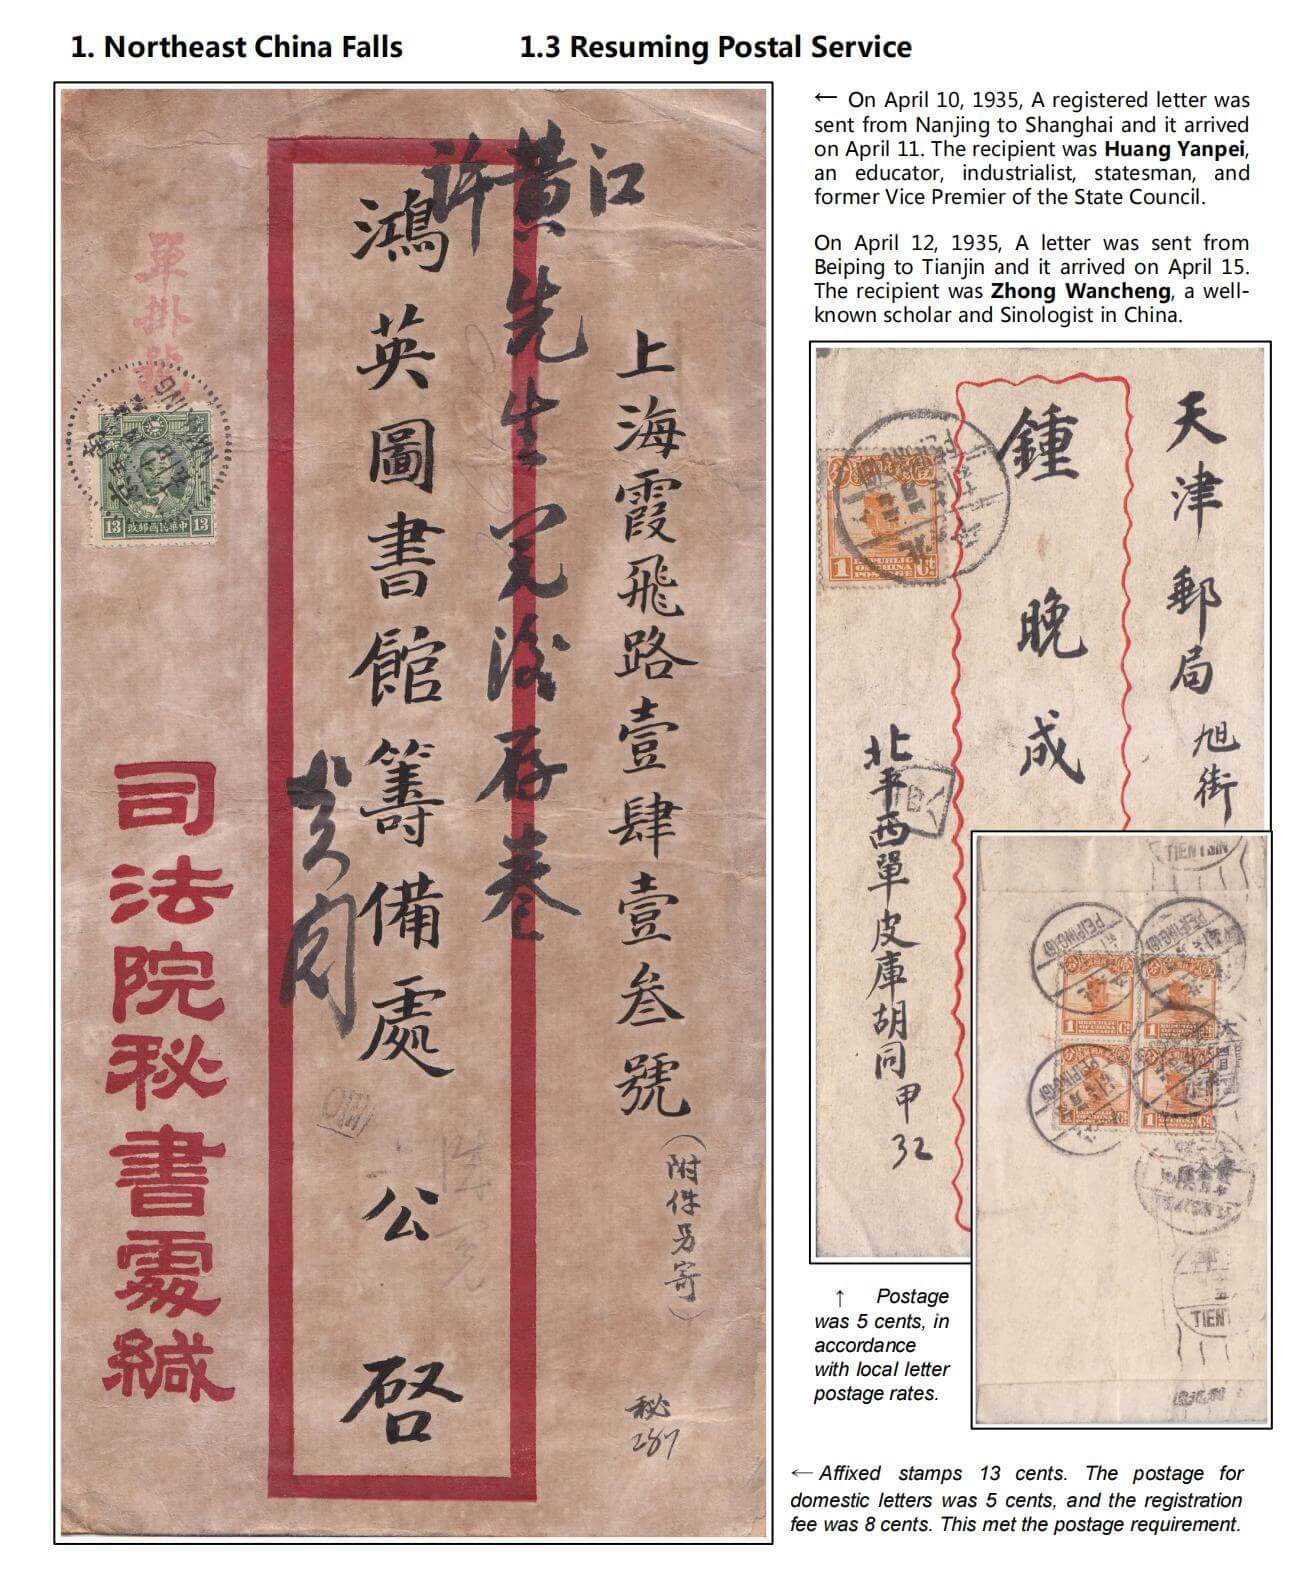 1. Northeast China Falls
1.3 Resuming Postal Service
← On April 10, 1935, A registered letter was
sent from Nanjing to Shanghai and it arrived
on April 11. The recipient was Huang Yanpei,
an educator, industrialist, statesman, and
former Vice Premier of the State Council.
On April 12, 1935, A letter was sent from
Beiping to Tianjin and it arrived on April 15.
The recipient was Zhong Wancheng, a well-
known scholar and Sinologist in China.
上海霞飛路壹肆壹叁號
(附件另寄)
秘
287
江
黄先生
許
存卷
鴻英圖書館籌備處
公啓
炎
單掛號
13 中華民國郵政 13
司法院秘書處緘
天津郵局
旭街
鍾晚成
北平西單皮庫胡同甲32
PEIPING
1 REPUBLIC OF CHINA POSTAGE Ct
TIENTSIN
PEIPING(6)
PEIPING(6)
1 REPUBLIC OF CHINA POSTAGE Ct
1 REPUBLIC OF CHINA POSTAGE Ct
PEIPING(6)
1 REPUBLIC OF CHINA POSTAGE Ct
1 REPUBLIC OF CHINA POSTAGE Ct
TIENT
↑ Postage
was 5 cents, in
accordance
with local letter
postage rates.
← Affixed stamps 13 cents. The postage for
domestic letters was 5 cents, and the registration
fee was 8 cents. This met the postage requirement.